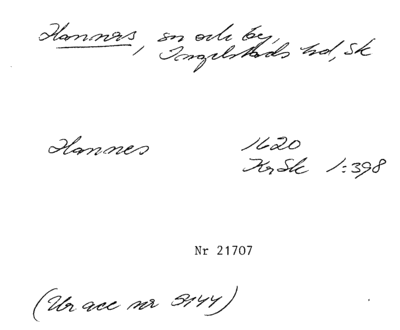 Hannas, sn och by,
Ingelstads hd, Sk
Hannes 1620
KrSk 1:398
Nr 21707
(Ur acc nr 5144)